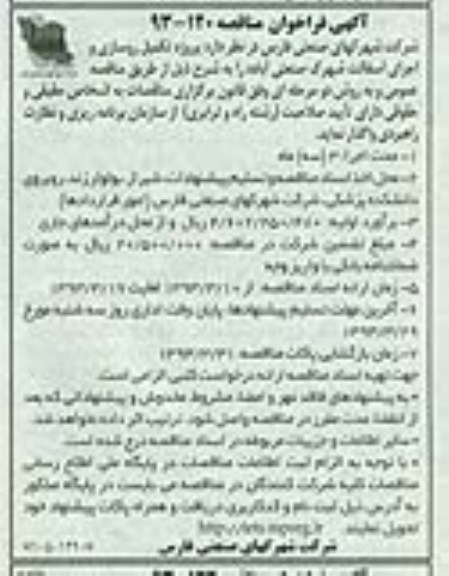 آگهی فراخوان مناقصه ۱۲۰-۹۳
شرکت شهرکهای صنعتی فارس در نظر دارد پروژه تکمیل زیرسازی و
اجرای آسفالت شهرک صنعتی آباده را به شرح ذیل از طریق مناقصه
عمومی و به روش دو مرحله ای وفق قانون برگزاری مناقصات به اشخاص حقیقی و
حقوقی دارای تأیید صلاحیت (رشته راه و ترابری) از سازمان برنامه ریزی و نظارت
راهبردی واگذار نماید.
۱- مدت اجرا: ۳ (سه) ماه
۲- محل اخذ اسناد مناقصه و تسلیم پیشنهادات: شیراز، بولوار زند، روبروی
دانشکده پزشکی، شرکت شهرکهای صنعتی فارس (امور قراردادها)
۳- برآورد اولیه: ریال و از محل درآمدهای جاری
۴- مبلغ تضمین شرکت در مناقصه: ریال به صورت
ضمانتنامه بانکی یا واریز وجه
۵- زمان ارائه اسناد مناقصه: از لغایت
۶- آخرین مهلت تسلیم پیشنهادها: پایان وقت اداری روز سه شنبه مورخ
۷- زمان بازگشایی پاکات مناقصه:
جهت تهیه اسناد مناقصه ارائه درخواست کتبی الزامی است.
* به پیشنهادهای فاقد مهر و امضا، مشروط، مخدوش و پیشنهاداتی که بعد
از انقضا مدت مقرر در مناقصه واصل شود، ترتیب اثر داده نخواهد شد.
* سایر اطلاعات و جزییات مربوطه در اسناد مناقصه درج شده است.
* با توجه به الزام ثبت اطلاعات مناقصات در پایگاه ملی اطلاع رسانی
مناقصات کلیه شرکت کنندگان در مناقصه می بایست در پایگاه مذکور
به آدرس ذیل ثبت نام و کد کاربری دریافت و همراه پاکات پیشنهاد خود
تحویل نمایند. http://iets.mporg.ir
شرکت شهرکهای صنعتی فارس